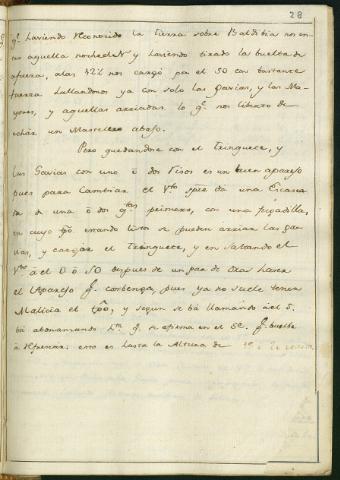 28
qe. haviendo reconocido la tierra sobre Baldibia nos en-
aquella noche el N y haviendo tirado la buelta de
afuera, a las 4 1/2 nos cargó por el SO con bastante
fuerza hallandonos ya con solo las gavias, y las Ma-
yores, y aquellas arriadas lo qe. nos liberto de
echar un Mastelero abajo.
Pero quedandose con el Trinquete, y
las Gavias con uno ó dos Risos es un buen aparejo
pues para Cambiar el Vto. spre. da una Escara
de una ó dos gtas primero, con una fugadilla,
en cuyo tpô estando listos se pueden arriar las ga-
vias, y cargar el Trinquete, y en saltando el
Vto. á el O ó SO despues de un par de oras hacer
el Aparejo qe. combenga, pues ya no suele tener
Malicia el tpô, y segun se bá llamando á el S.
bá abonanzando hta. qe. se afirma en el SE. qe. buelbe
á refrescar: esto es hasta la Altura de